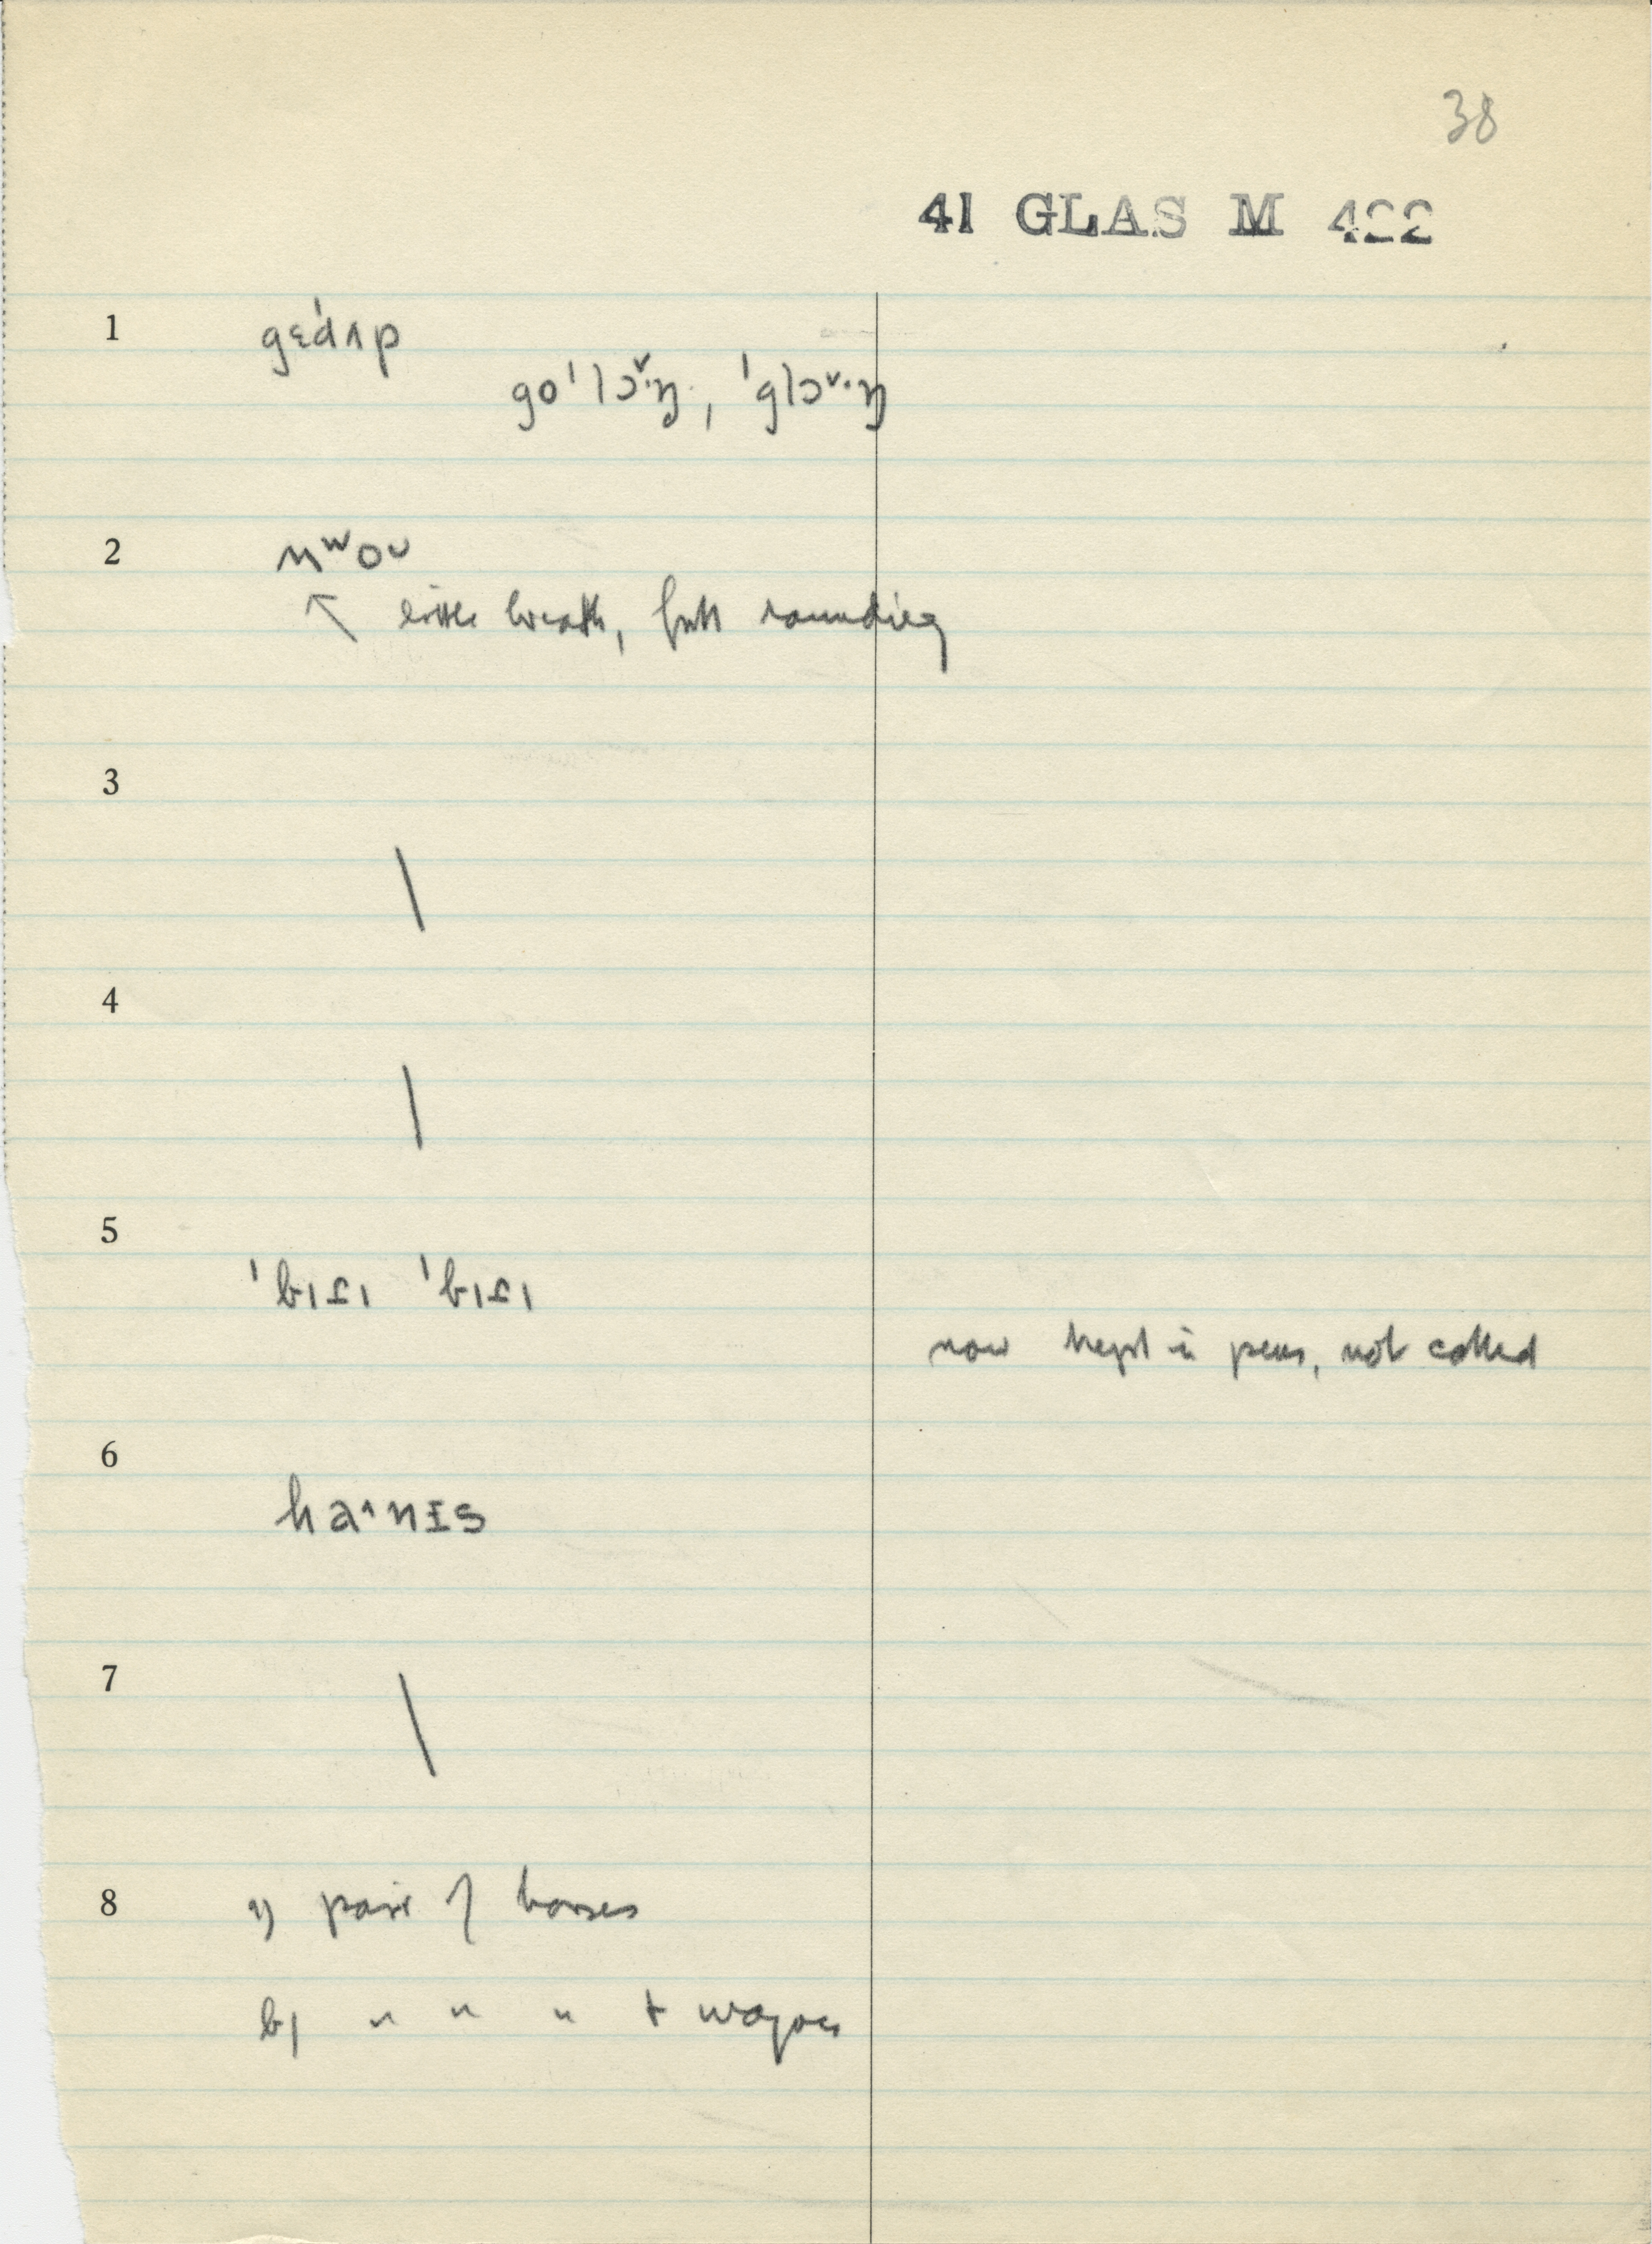 38
41 GLAS M 422
1 gɛd'ʌp
go'lɔˇ·ŋ, 'glɔˇ·ŋ
2 ʍʷou
↖ little breath, full rounding
3
\
4
\
5
'bɪdɪ 'bɪdɪ
now kept in pens, not called
6
ha^·nɪs
7
\
8 a) pair of horses
b) " " " + wagon